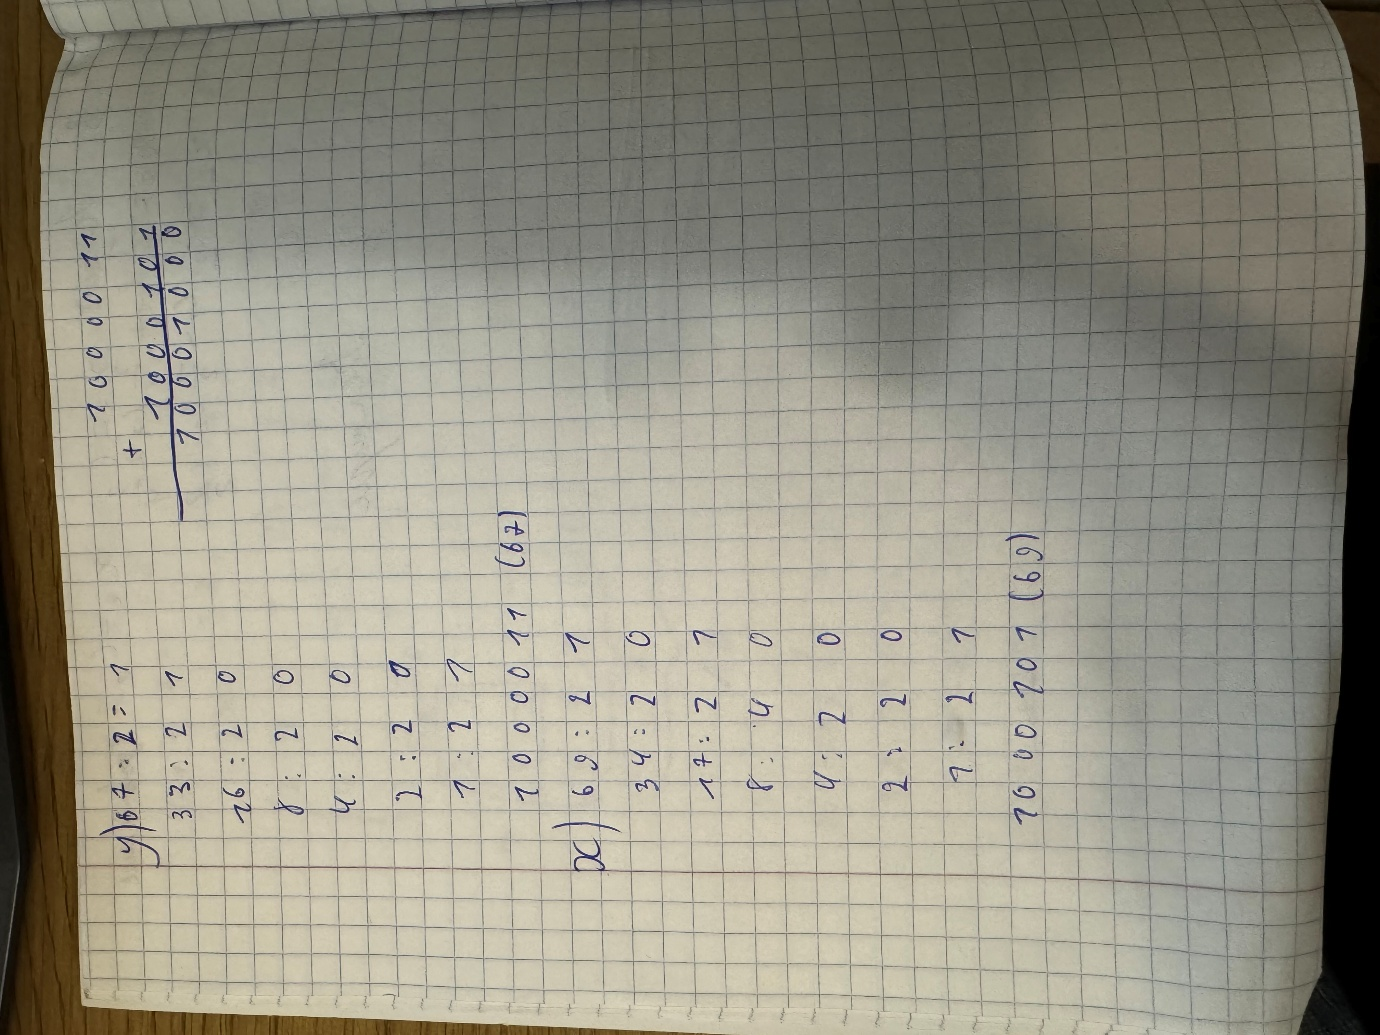 y) 67 : 2 = 1
33 : 2 1
16 : 2 0
8 : 2 0
4 : 2 0
2 : 2 0
1 : 2 1
1 0 0 0 0 1 1 (67)
x) 69 : 2 1
34 : 2 0
17 : 2 1
8 : 4 0
4 : 2 0
2 : 2 0
1 : 2 1
10 00 101 (69)
1 0 0 0 0 1 1
+
1 0 0 0 1 0 1
1 0 0 0 1 0 0 0